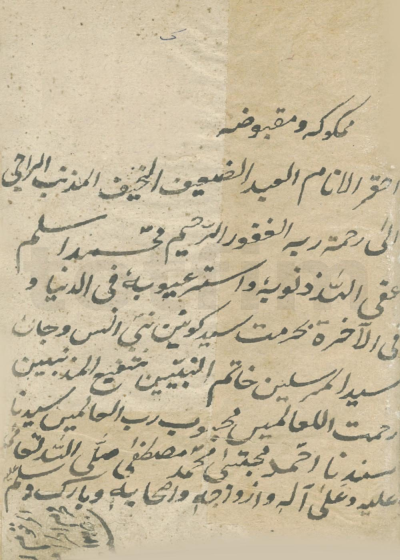 مملوکه و مقبوضه
احقر الانام العبد الضعیف النحیف المذنب الراجی
الی رحمة ربه الغفور الرحیم محمد اسلم
عفی الله ذنوبهٗ واستر عیوبهٗ فی الدنیا و
فی الآخرة بحرمت سید کونین نبی انس وجان
سید المرسلین خاتم النبیین شفیع المذنبین
رحمت اللعالمین محبوب رب العالمین سیدنا
سندنا احمد مجتبیٰ محمد مصطفیٰ صلی الله تعالیٰ
علیه وعلیٰ آله وازواجه واصحابه وبارک وسلم